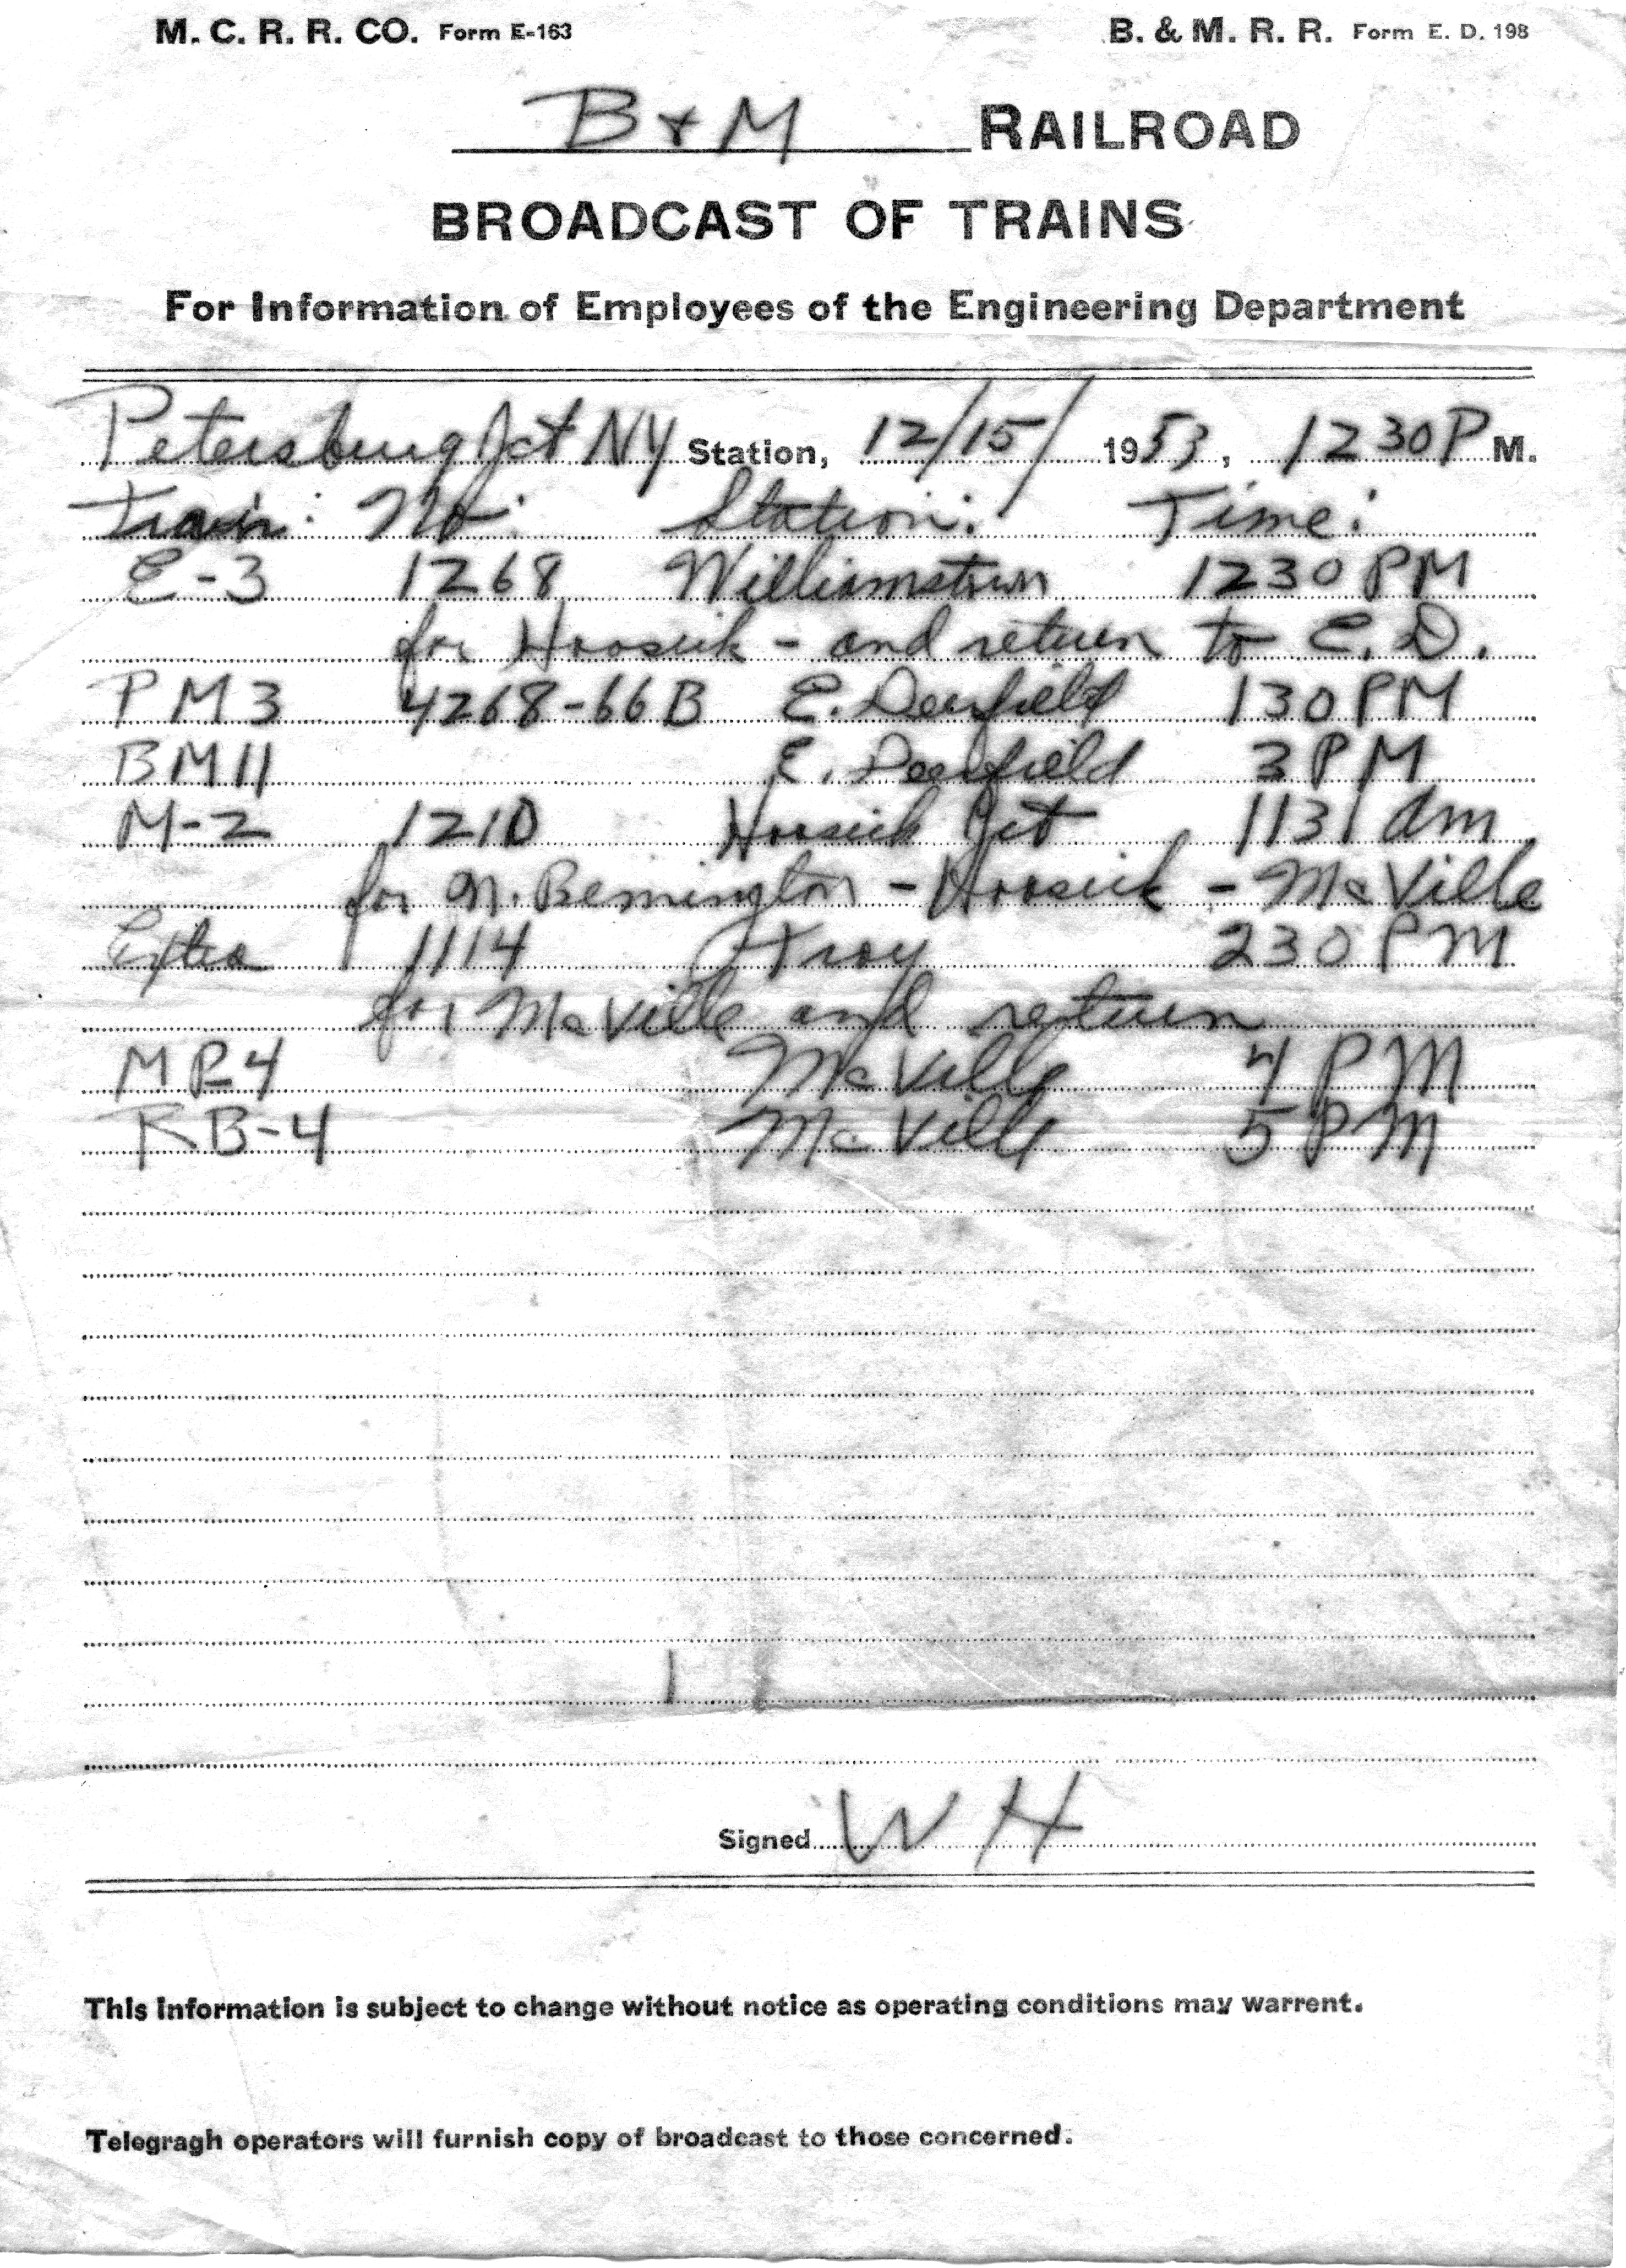 M. C. R. R. CO. Form E-163 B. & M. R. R. Form E. D. 198
B & M RAILROAD
BROADCAST OF TRAINS
For Information of Employees of the Engineering Department
Petersburg Jct NY Station, 12/15/ 1953, 1230P M.
Train: No: Station: Time:
E-3 1268 Williamstown 1230 PM
for Hoosick - and return to E. D.
PM3 4268-66B E. Deerfield 130 PM
BM11 E. Deerfield 3 PM
M-2 1210 Hoosick Jct 1131 am
for N. Bennington - Hoosick - McVille
Extra 1114 Troy 230 PM
for McVille and return
MP-4 McVille 4 PM
RB-4 McVille 5 PM
Signed WH
This information is subject to change without notice as operating conditions may warrent.
Telegragh operators will furnish copy of broadcast to those concerned.